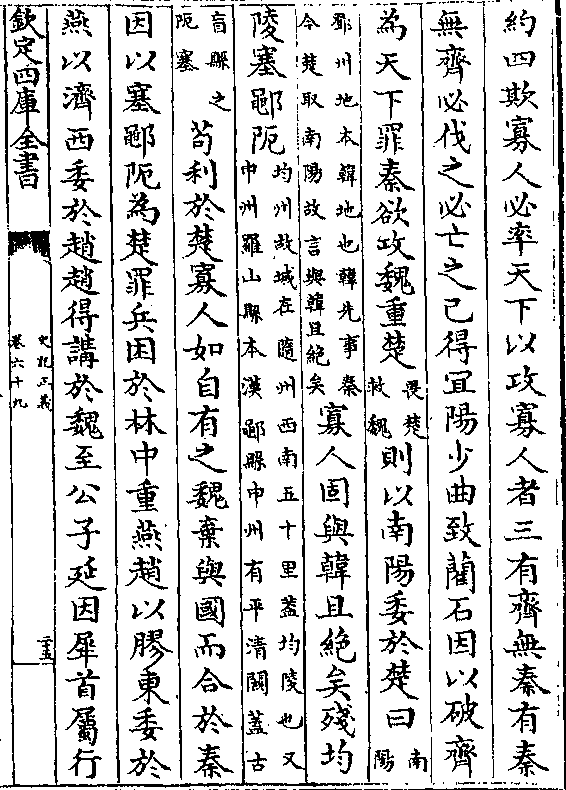 約四欺寡人必率天下以攻寡人者三有齊無秦有秦
無齊必伐之必亡之已得宜陽少曲致藺石因以破齊
為天下罪秦欲攻魏重楚畏楚救魏則以南陽委於楚曰南陽
鄧州地本韓地也韓先事秦今楚取南陽故言與韓且絕矣寡人固與韓且絕矣殘均
陵塞鄳阨均州故城在隨州西南五十里蓋均陵也又申州羅山縣本漢鄳縣申州有平清關蓋古
盲縣之阨塞茍利於楚寡人如自有之魏棄與國而合於秦
因以塞鄳阨為楚罪兵困於林中重燕趙以膠東委於
燕以濟西委於趙趙得講於魏至公子延因犀首屬行
欽定四庫全書
史記正義
卷六十九